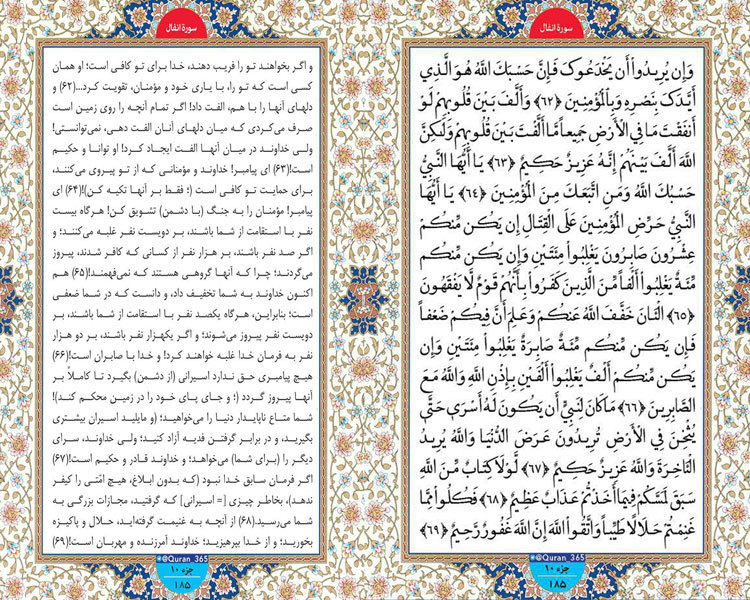 سورهٔ انفال
وَإِن يُرِيدُوا أَن يَخْدَعُوكَ فَإِنَّ حَسْبَكَ اللَّهُ هُوَ الَّذِي
أَيَّدَكَ بِنَصْرِهِ وَبِالْمُؤْمِنِينَ ﴿٦٢﴾ وَأَلَّفَ بَيْنَ قُلُوبِهِمْ لَوْ
أَنفَقْتَ مَا فِي الْأَرْضِ جَمِيعاً مَّا أَلَّفَتْ بَيْنَ قُلُوبِهِمْ وَلَكِنَّ
اللَّهَ أَلَّفَ بَيْنَهُمْ إِنَّهُ عَزِيزٌ حَكِيمٌ ﴿٦٣﴾ يَا أَيُّهَا النَّبِيُّ
حَسْبُكَ اللَّهُ وَمَنِ اتَّبَعَكَ مِنَ الْمُؤْمِنِينَ ﴿٦٤﴾ يَا أَيُّهَا
النَّبِيُّ حَرِّضِ الْمُؤْمِنِينَ عَلَى الْقِتَالِ إِن يَكُن مِّنكُمْ
عِشْرُونَ صَابِرُونَ يَغْلِبُوا مِئَتَيْنِ وَإِن يَكُن مِّنكُم
مِّئَةٌ يَغْلِبُوا أَلْفاً مِّنَ الَّذِينَ كَفَرُوا بِأَنَّهُمْ قَوْمٌ لَّا يَفْقَهُونَ
﴿٦٥﴾ الْآنَ خَفَّفَ اللَّهُ عَنكُمْ وَعَلِمَ أَنَّ فِيكُمْ ضَعْفاً
فَإِن يَكُن مِّنكُم مِّئَةٌ صَابِرَةٌ يَغْلِبُوا مِئَتَيْنِ وَإِن
يَكُن مِّنكُمْ أَلْفٌ يَغْلِبُوا أَلْفَيْنِ بِإِذْنِ اللَّهِ وَاللَّهُ مَعَ
الصَّابِرِينَ ﴿٦٦﴾ مَا كَانَ لِنَبِيٍّ أَن يَكُونَ لَهُ أَسْرَى حَتَّى
يُثْخِنَ فِي الْأَرْضِ تُرِيدُونَ عَرَضَ الدُّنْيَا وَاللَّهُ يُرِيدُ
الْآخِرَةَ وَاللَّهُ عَزِيزٌ حَكِيمٌ ﴿٦٧﴾ لَّوْلَا كِتَابٌ مِّنَ اللَّهِ
سَبَقَ لَمَسَّكُمْ فِيمَا أَخَذْتُمْ عَذَابٌ عَظِيمٌ ﴿٦٨﴾ فَكُلُوا مِمَّا
غَنِمْتُمْ حَلَالاً طَيِّباً وَاتَّقُوا اللَّهَ إِنَّ اللَّهَ غَفُورٌ رَّحِيمٌ ﴿٦٩﴾
@Quran_365
جزء ۱۰
۱۸۵
سورهٔ انفال
و اگر بخواهند تو را فریب دهند، خدا برای تو کافی است؛ او همان
کسی است که تو را، با یاری خود و مؤمنان، تقویت کرد...(۶۲) و
دلهای آنها را با هم، الفت داد! اگر تمام آنچه را روی زمین است
صرف می‌کردی که میان دلهای آنان الفت دهی، نمی‌توانستی!
ولی خداوند در میان آنها الفت ایجاد کرد! او توانا و حکیم
است!(۶۳) ای پیامبر! خداوند و مؤمنانی که از تو پیروی می‌کنند،
برای حمایت تو کافی است (؛ فقط بر آنها تکیه کن)!(۶۴) ای
پیامبر! مؤمنان را به جنگ (با دشمن) تشویق کن! هرگاه بیست
نفر با استقامت از شما باشند، بر دویست نفر غلبه می‌کنند؛ و
اگر صد نفر باشند، بر هزار نفر از کسانی که کافر شدند، پیروز
می‌گردند؛ چرا که آنها گروهی هستند که نمی‌فهمند!(۶۵) هم
اکنون خداوند به شما تخفیف داد، و دانست که در شما ضعفی
است؛ بنابراین، هرگاه یکصد نفر با استقامت از شما باشند، بر
دویست نفر پیروز می‌شوند؛ و اگر یکهزار نفر باشند، بر دو هزار
نفر به فرمان خدا غلبه خواهند کرد! و خدا با صابران است!(۶۶)
هیچ پیامبری حق ندارد اسیرانی (از دشمن) بگیرد تا کاملاً بر
آنها پیروز گردد (؛ و جای پای خود را در زمین محکم کند)!
شما متاع ناپایدار دنیا را می‌خواهید؛ (و مایلید اسیران بیشتری
بگیرید، و در برابر گرفتن فدیه آزاد کنید؛ ولی خداوند، سرای
دیگر را (برای شما) می‌خواهد؛ و خداوند قادر و حکیم است!(۶۷)
اگر فرمان سابق خدا نبود (که بدون ابلاغ، هیچ امّتی را کیفر
ندهد)، بخاطر چیزی [= اسیرانی] که گرفتید، مجازات بزرگی به
شما می‌رسید.(۶۸) از آنچه به غنیمت گرفته‌اید، حلال و پاکیزه
بخورید؛ و از خدا بپرهیزید؛ خداوند آمرزنده و مهربان است!(۶۹)
@Quran_365
جزء ۱۰
۱۸۵